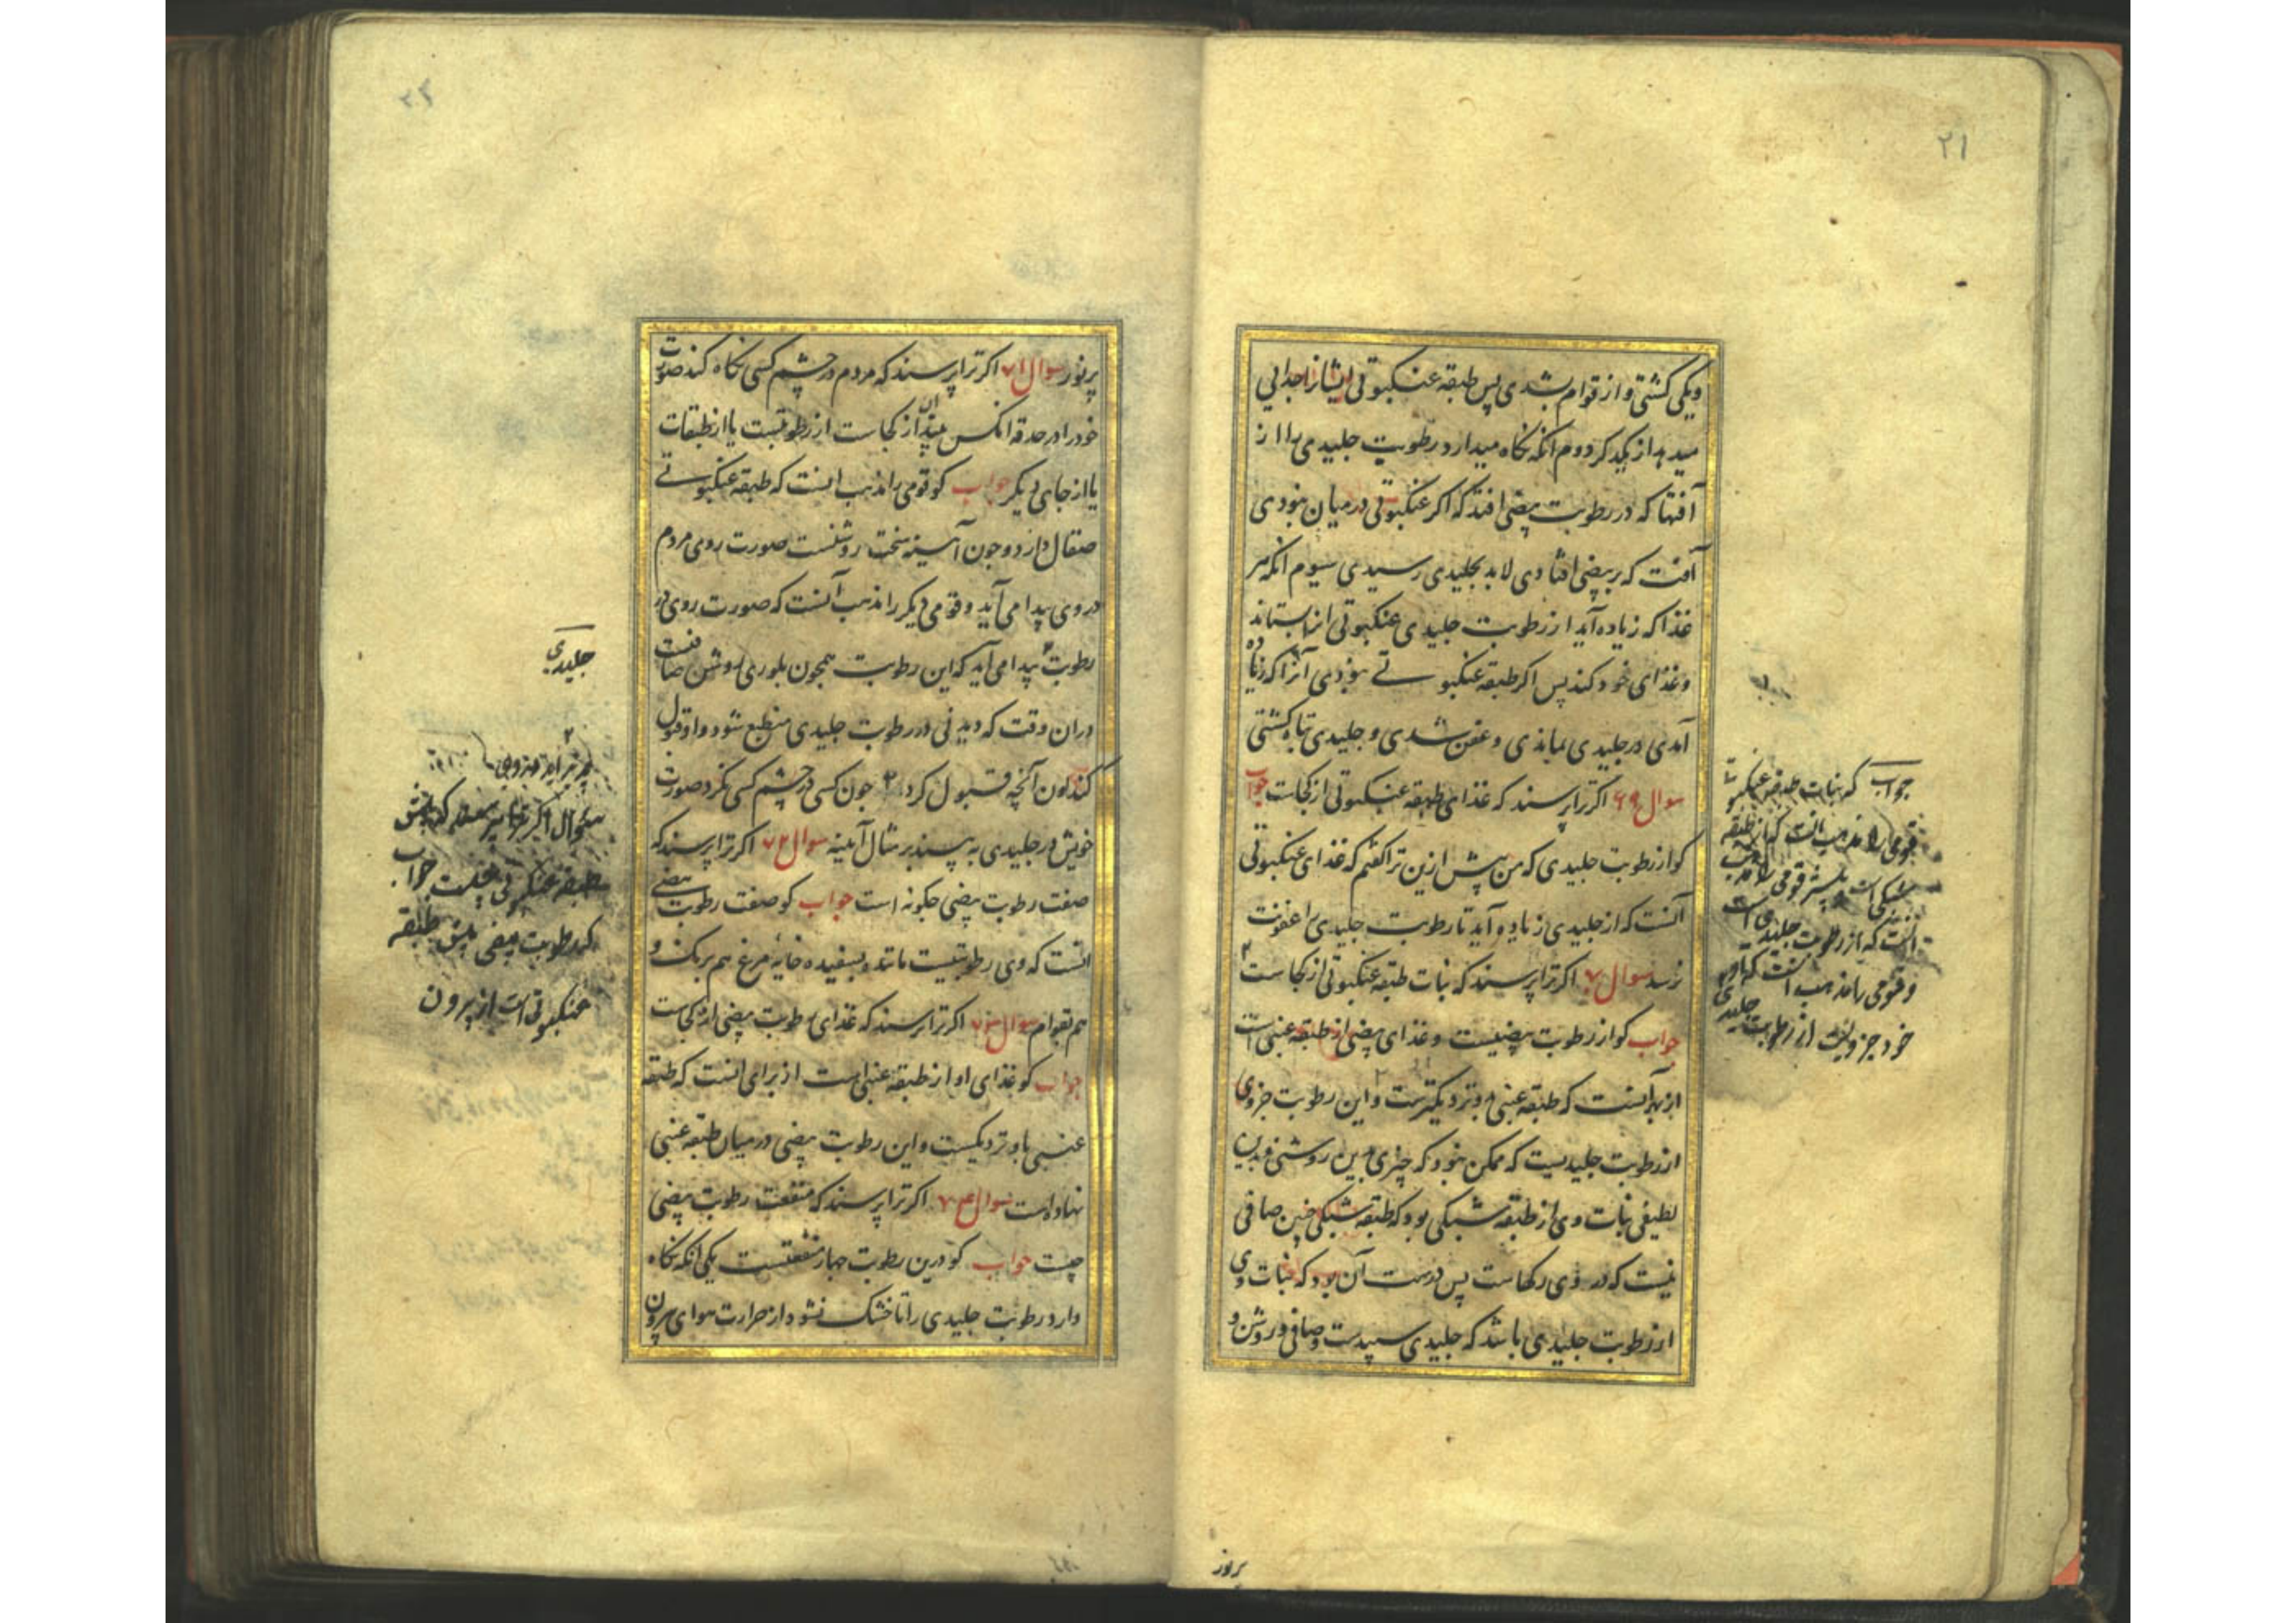 ۲۱
ویکی کشتی و از قوام بشدی پس طبقه عنکبوتی ایشانرا جدایی
میدهد از یکدیکر دوم آنکه نکاه میدارد رطوبت جلیدی را از
آفتها که در رطوبت بیضی افتد که اکر عنکبوتی در میان نبودی
آفت که بر بیضی افتادی لابد بجلیدی رسیدی سیوم آنکه هر
غذا که زیاده آید از رطوبت جلیدی عنکبوتی انرا بستاند
و غذای خود کند پس اکر طبقه عنکبوتی نبودی آنرا که زیاده
آمدی در جلیدی بماندی و عفن شدی و جلیدی تباه کشتی
سوال ۶۹ اکر ترا پرسند که غذای طبقه عنکبوتی از کجاست جواب
کو از رطوبت جلیدی که من پیش ازین ترا کفتم که غذای عنکبوتی
آنست که از جلیدی زیاده آید تا رطوبت جلیدی را عفونت
نرسد سوال ۷۰ اکر ترا پرسند که نبات طبقه عنکبوتی از کجاست
جواب کو از رطوبت بیضیست و غذای بیضی از طبقه عنبی است
از بهر آنست که طبقه عنبی بدو نزدیکترست و این رطوبت جزوی
از رطوبت جلیدیست که ممکن نبود که چیزی بدین روشنی و بدین
لطیفی نبات وی از طبقه شبکی بود که طبقه شبکی چنین صافی
نیست که در وی رکهاست پس درست آن بود که نبات وی
از رطوبت جلیدی باشد که جلیدی سپیدست و صافی و روشن و
جواب که نبات طبقه عنکبوتی
قومی را مذهب انست که از طبقه
شبکی است و بیشتر قومی را مذهب
آنست که از رطوبت جلیدی است
و قومی را مذهب انست که او
خود جزویست از رطوبت جلیدی
پرنور
پرنور سوال ۷۱ اکر ترا پرسند که مردم در چشم کسی نکاه کند صورت
خود را در حدقه انکس بیند آن از کجاست از رطوبتست یا از طبقات
یا از جای دیکر جواب کو قومی را مذهب انست که طبقه عنکبوتی
صقال دارد و چون آیینه سخت روشنست صورت روی مردم
در وی پیدا می آید و قومی دیکر را مذهب آنست که صورت روی در
رطوبت پیدا می آید که این رطوبت همچون بلوری روشن صافیست
دران وقت که دیدنی در رطوبت جلیدی منطبع شود و او قبول
کند لون آنچه قبول کرد چون کسی در چشم کسی نکرد صورت
خویش در جلیدی به بیند بر مثال آیینه سوال ۷۲ اکر ترا پرسند که
صفت رطوبت بیضی چکونه است جواب کو صفت رطوبت بیضی
انست که وی رطوبتیست مانند سفیده خایه مرغ هم برنک و
هم بقوام سوال ۷۳ اکر ترا پرسند که غذای رطوبت بیضی از کجاست
جواب کو غذای او از طبقه عنبی است از برای انست که طبقه
عنبی باو نزدیکست و این رطوبت بیضی در میان طبقه عنبی
نهاده است سوال ۷۴ اکر ترا پرسند که منفعت رطوبت بیضی
چیست جواب کو درین رطوبت چهار منفعتست یکی انکه نکاه
دارد رطوبت جلیدی را تا خشک نشود از حرارت هوای بیرون
جلیدی
سوال اکر ترا پرسند که پیش
طبقه عنکبوتی چیست جواب
که رطوبت بیضی پیش طبقه
عنکبوتی است از بیرون